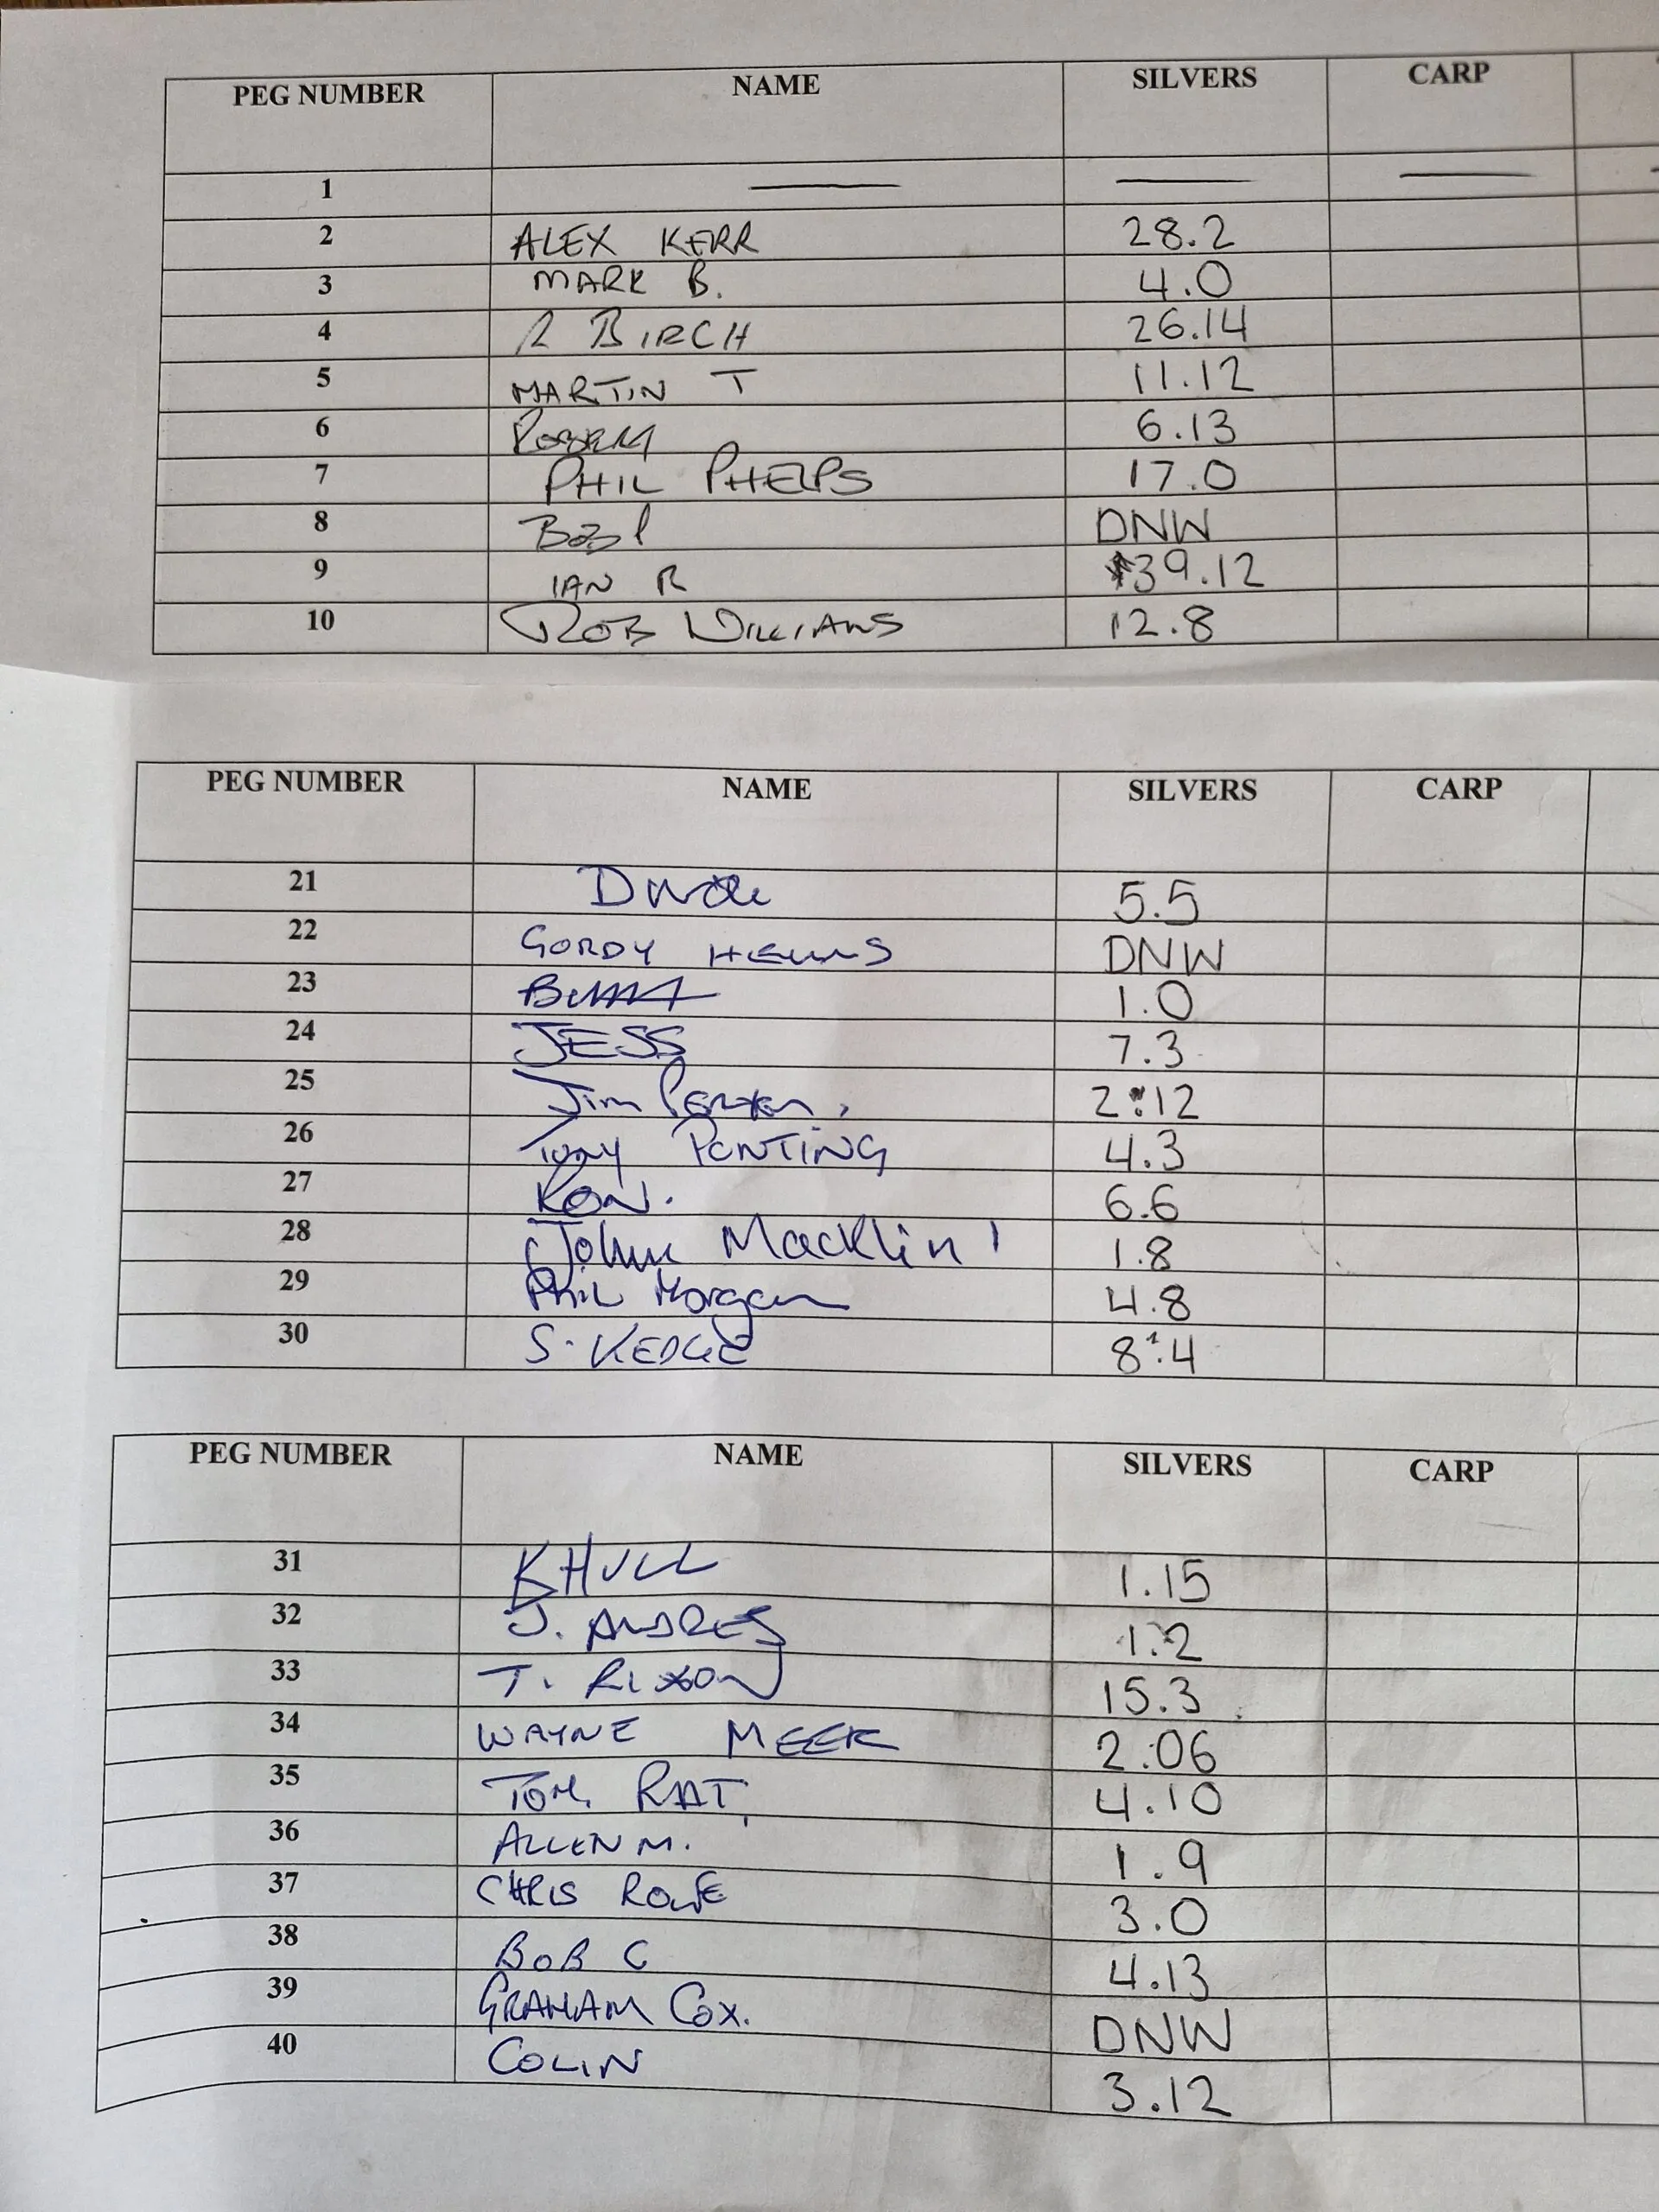 PEG NUMBER NAME SILVERS CARP
1 — — —
2 ALEX KERR 28.2
3 MARK B. 4.0
4 R BIRCH 26.14
5 MARTIN T 11.12
6 6.13
7 PHIL PHELPS 17.0
8 DNW
9 IAN R 39.12
10 ROB WILLIAMS 12.8
PEG NUMBER NAME SILVERS CARP
21 5.5
22 GORDY DNW
23 1.0
24 JESS 7.3
25 Jim 2.12
26 TONY PONTING 4.3
27 RON. 6.6
28 John Macklin 1.8
29 Phil Morgan 4.8
30 S. KEDGE 8.4
PEG NUMBER NAME SILVERS CARP
31 K HULL 1.15
32 J. ANDRES 1.2
33 T. RIXON 15.3
34 WAYNE MEEK 2.06
35 TOM. RAT 4.10
36 ALLEN M. 1.9
37 CHRIS ROLFE 3.0
38 BOB C 4.13
39 GRAHAM COX. DNW
40 COLIN 3.12